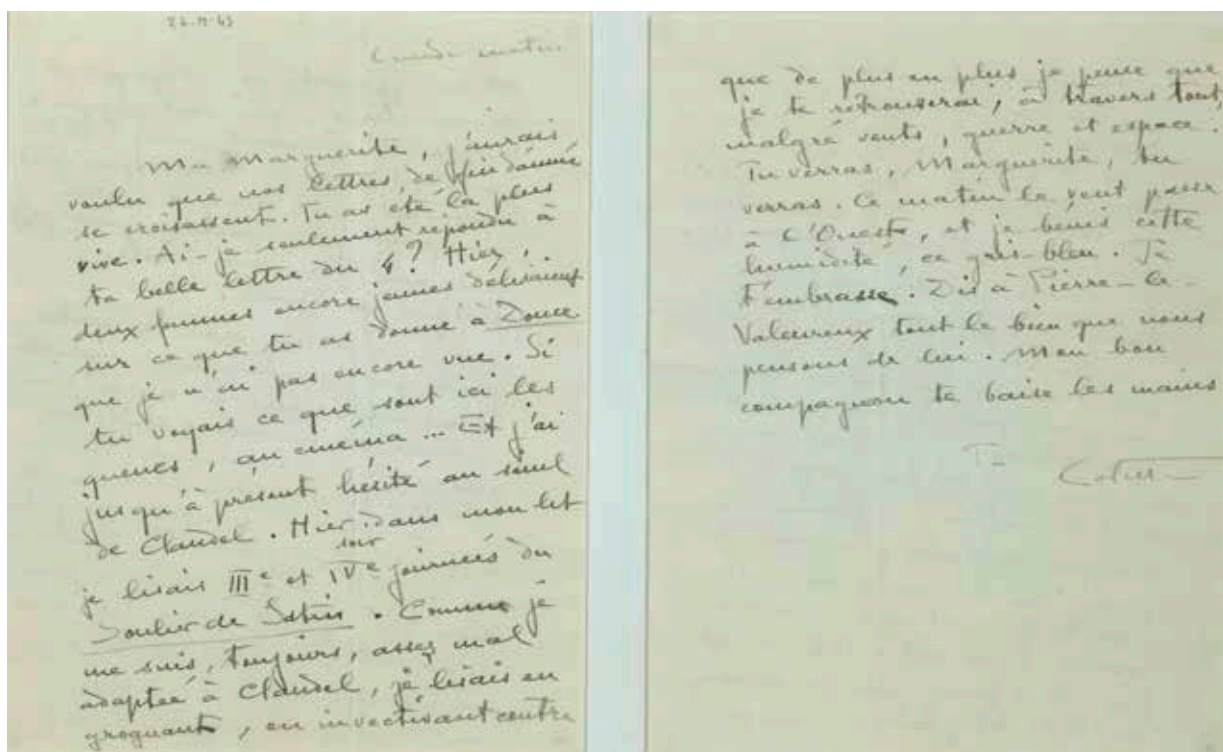 22-11-43
Lundi matin
Ma Marguerite, j'aurais
voulu que nos lettres, de fin d'année
se croisassent. Tu as été la plus
vive. Ai-je seulement répondu à
ta belle lettre du 4? Hier,
deux femmes encore jeunes déliraient
sur ce que tu as donné à Douce
que je n'ai pas encore vue. Si
tu voyais ce que sont ici les
queues, au cinéma... Et j'ai
jusqu'à présent hésité au seuil
de Claudel. Hier soir dans mon lit
je lisais IIIe et IVe journées du
Soulier de Satin. Comme je
me suis, toujours, assez mal
adaptée à Claudel, je lisais en
grognant, en invectivant contre
que de plus en plus je pense que
je te retrouverai, à travers tout,
malgré vents, guerre et espace.
Tu verras, Marguerite, tu
verras. Ce matin le vent passe
à l'Ouest, et je bénis cette
humidité, ce gris-bleu. Je
t'embrasse. Dis à Pierre-le-
Valeureux tout le bien que nous
pensons de lui. Mon bon
compagnon te baise les mains
Ta
Colette